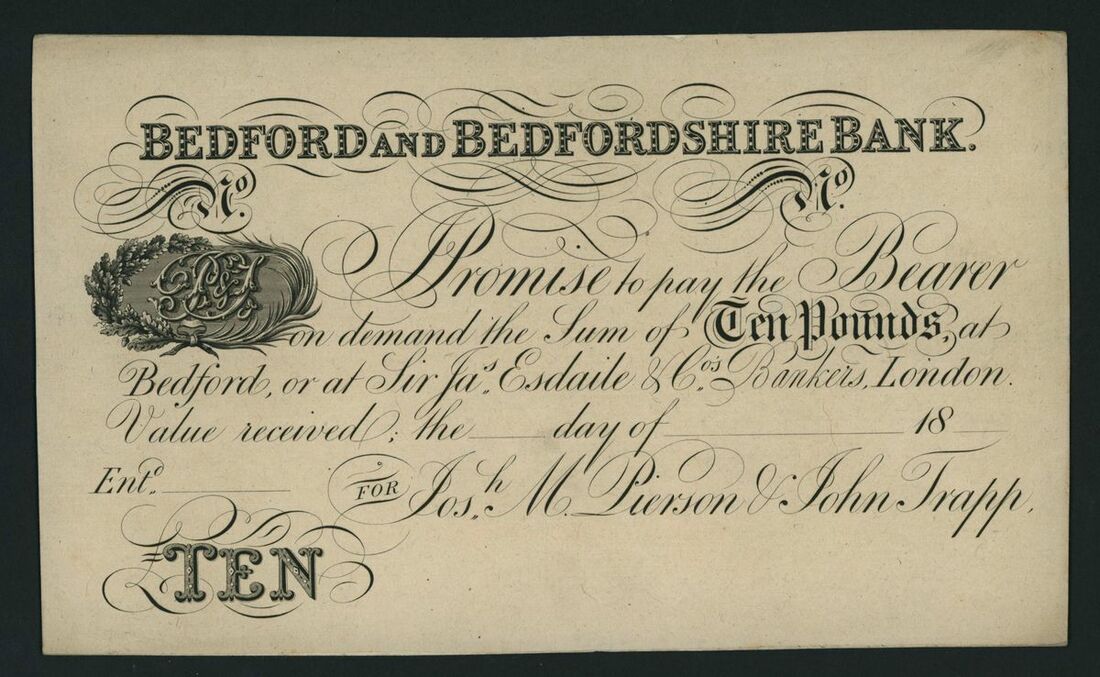 BEDFORD AND BEDFORDSHIRE BANK.
No. No.
I Promise to pay the Bearer
on demand the Sum of Ten Pounds, at
Bedford, or at Sir Jas. Esdaile & Co's. Bankers, London.
Value received; the ___ day of ___ 18 ___
Entd. ___ FOR Josh. M. Pierson & John Trapp.
£TEN